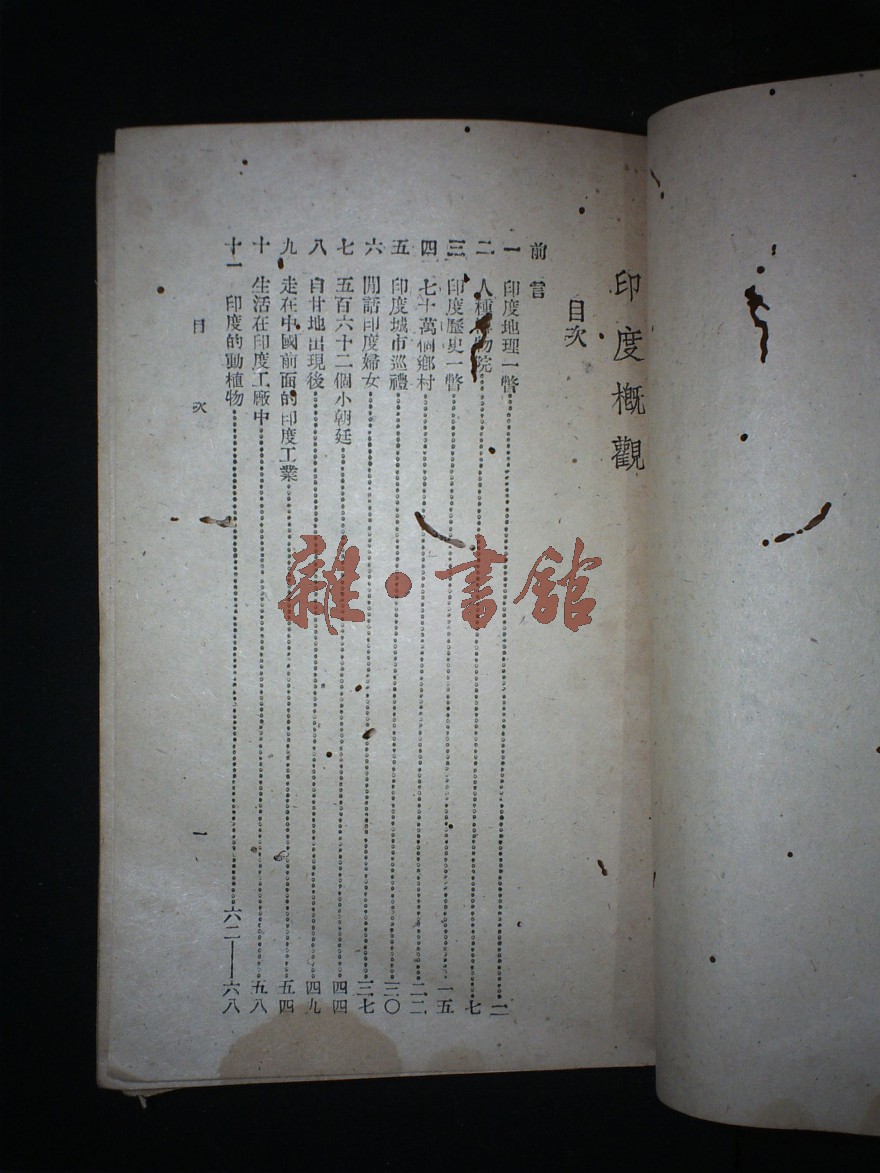 印度概觀
目次
前言
一 印度地理一瞥 二
二 人種博物院 七
三 印度歷史一瞥 一五
四 七十萬個鄉村 二二
五 印度城市巡禮 三〇
六 閒話印度婦女 三七
七 五百六十二個小朝廷 四四
八 自甘地出現後 四九
九 走在中國前面的印度工業 五四
十 生活在印度工廠中 五八
十一 印度的動植物 六二——六八
目次 一
雜·書館